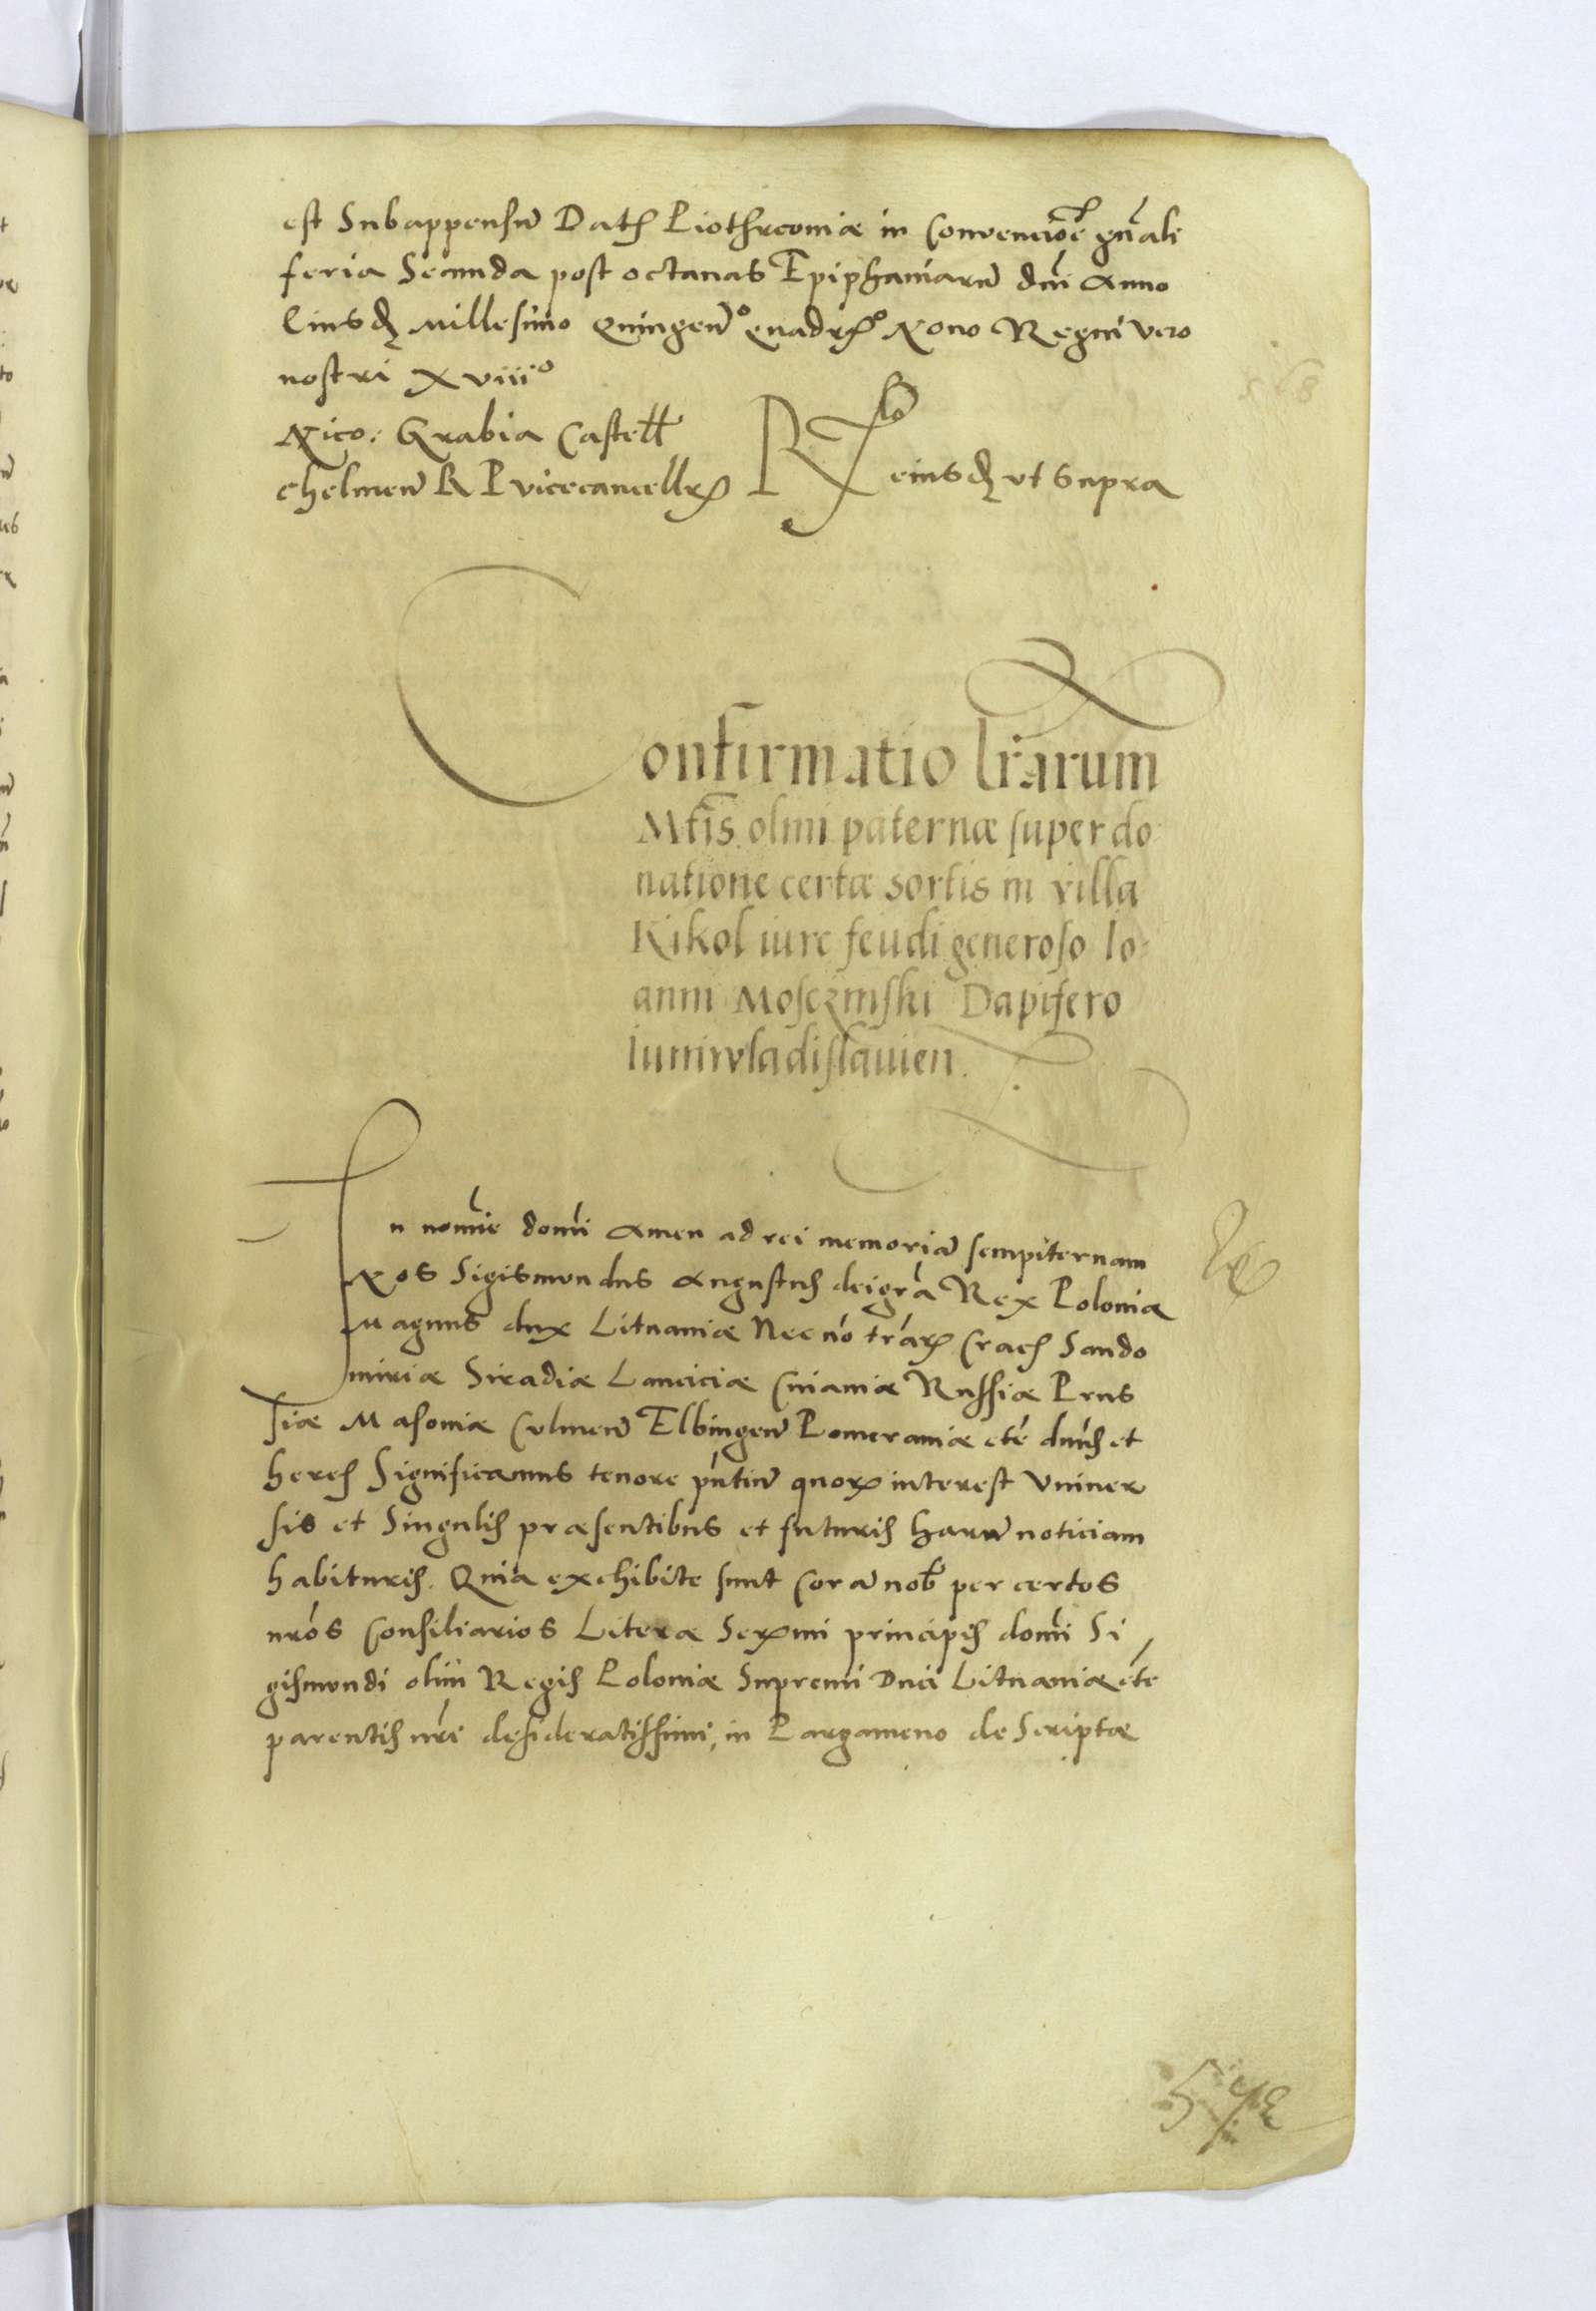 est Subappensũ Datꝭ Piothrconiæ in Convencioẽ gñali
feria Secunda post octauas Epiphaniarũ dñi Anno
Eiusdꝫ Millesimo Quingen̄º quadrꝭº Nono Regni vero
nostri Xviiiº
Nico: Grabia Castell
chelmen̄ R P vicecancellrꝭ Rlo eiusdꝫ vt Supra
Confirmatio lr̄arum
Mt̄is olim paternæ super do
natione certæ sortis in villa
Kikol iure feudi generoso Io-
anni Mosczinski Dapifero
Iuniwladislauien.
In nomīe domī Amen ad rei memoriã sempiternam
Nos Sigismundus Augustus dei gr̄a Rex Poloniæ
Magnus dux Lituaniæ Nec nō tr̄arꝝ Cracꝭ Sando
miriæ Siradiæ Lanciciæ Cuiauiæ Russiæ Prus
siæ Masoniæ Culmen̄ Elbingen̄ Pomeraniæ etc̄ dnūs et
heres Significamus tenore pn̄tiũ quorꝝ interest vniuer
sis et Singulis præsentibus et futuris harũ noticiam
habituris. Quia exchibite sunt Corã nob̄ per certos
nr̄os Consiliarios Literæ Serꝫmi principis domī Si
gismundi olim Regis Poloniæ Supremi Duci Lituaniæ etc̄
parentis nr̄i desideratissimi, in Pargameno de Scriptæ